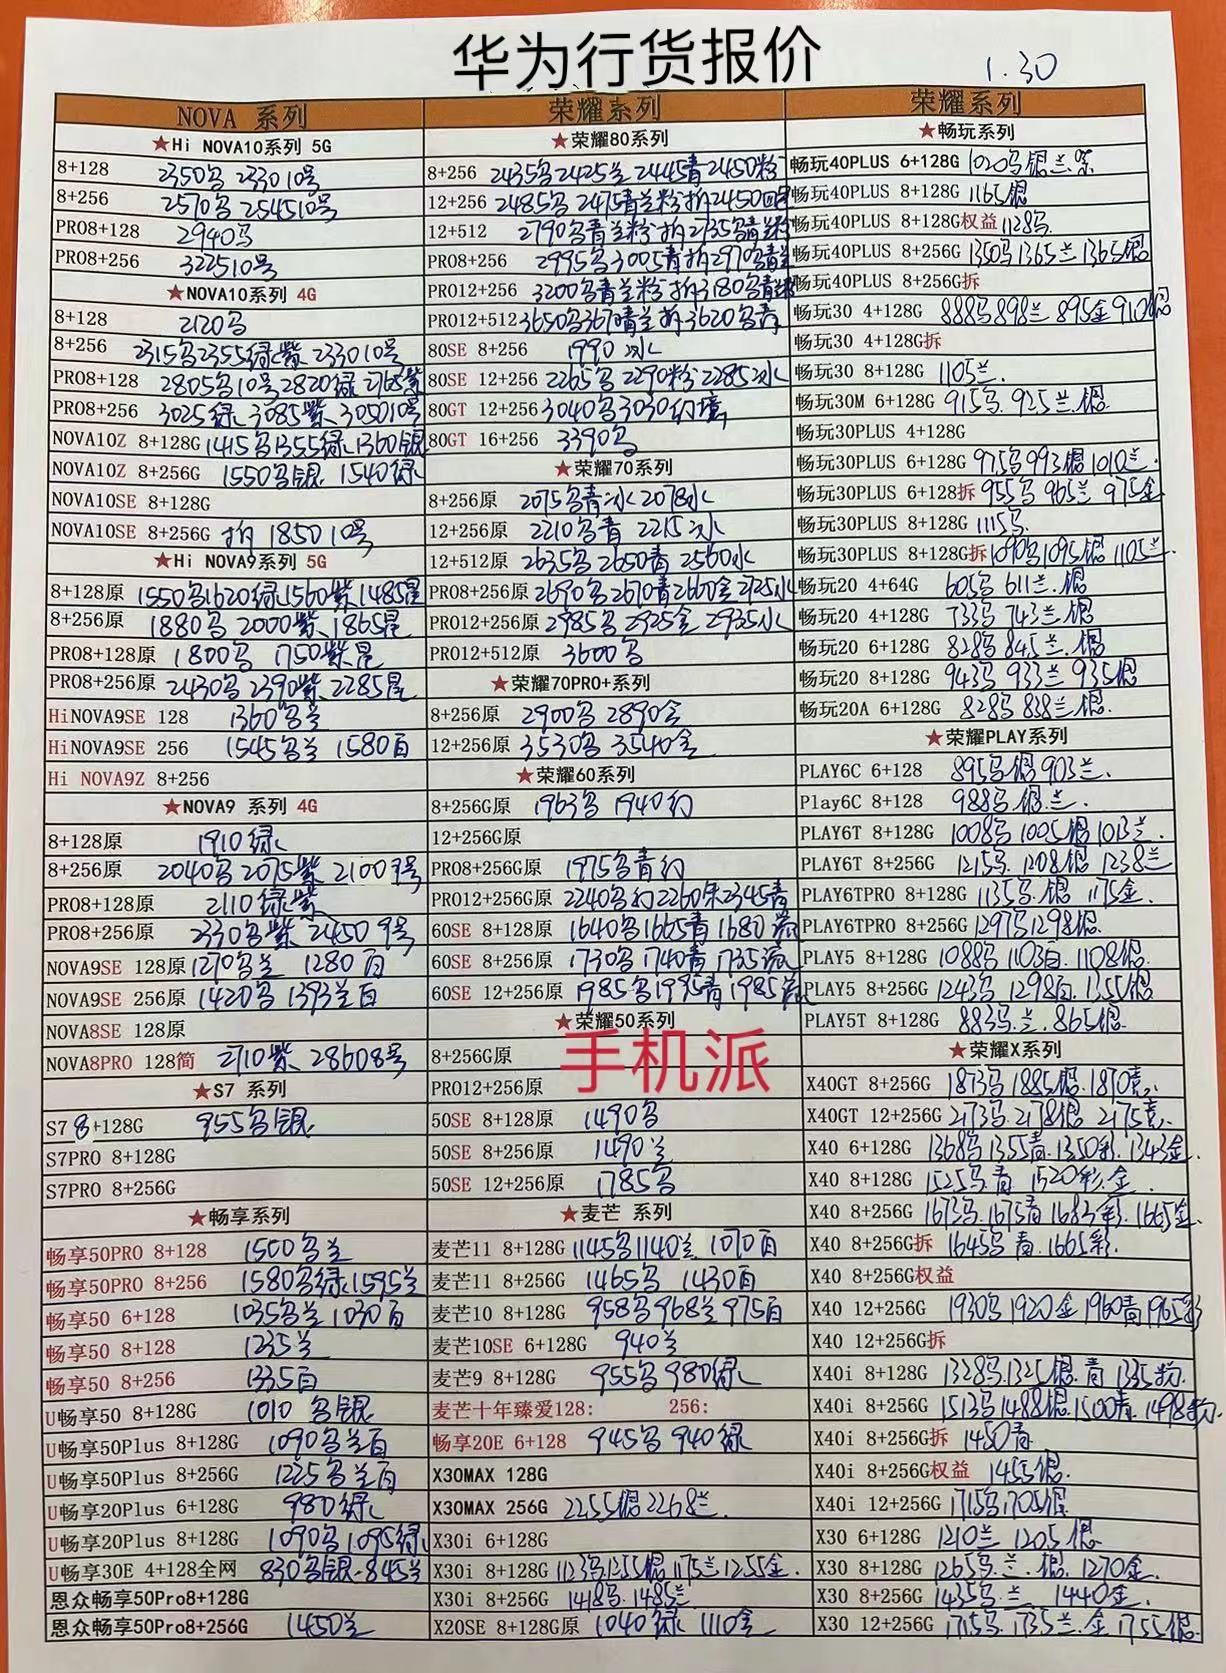 华为行货报价
1.30
NOVA 系列
★Hi NOVA10系列 5G
8+128 2350乌 2330 10号
8+256 2570乌 2545 10号
PRO8+128 2940乌
PRO8+256 3225 10号
★NOVA10系列 4G
8+128 2120乌
8+256 2315乌 2355绿紫 2330 10号
PRO8+128 2805乌10号 2820绿 2765紫
PRO8+256 3025绿 3085紫 3050 10号
NOVA10Z 8+128G 1415乌 1355绿 1360银
NOVA10Z 8+256G 1550乌银 1540绿
NOVA10SE 8+128G
NOVA10SE 8+256G 拆 1850 10号
★Hi NOVA9系列 5G
8+128原 1550乌 1620绿 1560紫 1485星
8+256原 1880乌 2000紫 1865星
PRO8+128原 1800乌 1750紫星
PRO8+256原 2430乌 2390紫 2285星
HiNOVA9SE 128 1360乌兰
HiNOVA9SE 256 1545乌兰 1580百
Hi NOVA9Z 8+256
★NOVA9 系列 4G
8+128原 1910绿
8+256原 2040乌 2075紫 2100 9号
PRO8+128原 2110绿紫
PRO8+256原 2330乌紫 2450 9号
NOVA9SE 128原 1270乌兰 1280百
NOVA9SE 256原 1420乌 1393兰百
NOVA8SE 128原
NOVA8PRO 128简 2710紫 2860 8号
★S7 系列
S7 8+128G 955乌银
S7PRO 8+128G
S7PRO 8+256G
★畅享系列
畅享50PRO 8+128 1500乌兰
畅享50PRO 8+256 1580乌绿 1595兰
畅享50 6+128 1035乌兰 1030百
畅享50 8+128 1235兰
畅享50 8+256 1335百
U畅享50 8+128G 1010 乌银
U畅享50Plus 8+128G 1090乌兰百
U畅享50Plus 8+256G 1225乌兰百
U畅享20Plus 6+128G 980绿
U畅享20Plus 8+128G 1090乌 1095绿
U畅享30E 4+128全网 830乌银 845兰
恩众畅享50Pro8+128G
恩众畅享50Pro8+256G 1450兰
荣耀系列
★荣耀80系列
8+256 2435乌 2425兰 2445青 2450粉
12+256 2485乌 2475青兰粉 拆2450
12+512 2790乌青兰粉 拆2735乌青兰粉
PRO8+256 2995乌 3005青 拆2970乌青兰
PRO12+256 3200乌青兰粉 拆3180乌青兰粉
PRO12+512 3650乌 367 兰 拆3620乌青
80SE 8+256 1990冰
80SE 12+256 2265乌 2290粉 2285冰
80GT 12+256 3040乌 3030
80GT 16+256 3390乌
★荣耀70系列
8+256原 2075乌青冰 2078冰
12+256原 2210乌青 2215冰
12+512原 2635乌 2650青 2560冰
PRO8+256原 2690乌 2670青 2600金 2725冰
PRO12+256原 2985乌 2925金 2935冰
PRO12+512原 3600乌
★荣耀70PRO+系列
8+256原 2900乌 2890金
12+256原 3530乌 3540金
★荣耀60系列
8+256G原 1963乌 1940幻
12+256G原
PRO8+256G原 1975乌青幻
PRO12+256G原 2240乌幻 2260朱 2345青
60SE 8+128原 1640乌 1665青 1680流
60SE 8+256原 1730乌 1740青 1735流
60SE 12+256原 1985乌 1995青 1985流
★荣耀50系列
手机派
8+256G原
PRO12+256原
50SE 8+128原 1490乌
50SE 8+256原 1490兰
50SE 12+256原 1785乌
★麦芒 系列
麦芒11 8+128G 1145乌 1140兰 1070百
麦芒11 8+256G 1465乌 1430百
麦芒10 8+128G 958乌 968兰 975百
麦芒10SE 6+128G 940兰
麦芒9 8+128G 955乌 980绿
麦芒十年臻爱128: 256:
畅享20E 6+128 945乌 940绿
X30MAX 128G
X30MAX 256G 2255银 2268兰
X30i 6+128G
X30i 8+128G 1123乌 1255银 1175兰 1255金
X30i 8+256G 1418乌 1485兰
X20SE 8+128G原 1040绿 1110金
荣耀系列
★畅玩系列
畅玩40PLUS 6+128G 1020乌银兰紫
畅玩40PLUS 8+128G 1165银
畅玩40PLUS 8+128G权益 1128乌
畅玩40PLUS 8+256G 1350乌 1365兰 1365银
畅玩40PLUS 8+256G拆
畅玩30 4+128G 888乌 898兰 895金 910银
畅玩30 4+128G拆
畅玩30 8+128G 1105兰
畅玩30M 6+128G 915乌 925兰银
畅玩30PLUS 4+128G
畅玩30PLUS 6+128G 975乌 993银 1010兰
畅玩30PLUS 6+128拆 955乌 965兰 975金
畅玩30PLUS 8+128G 1115乌
畅玩30PLUS 8+128G拆 1090乌 1095银 1105兰
畅玩20 4+64G 605乌 611兰银
畅玩20 4+128G 733乌 743兰银
畅玩20 6+128G 828乌 845兰银
畅玩20 8+128G 943乌 933兰 935银
畅玩20A 6+128G 828乌 838兰银
★荣耀PLAY系列
PLAY6C 6+128 895乌银 903兰
Play6C 8+128 988乌银兰
PLAY6T 8+128G 1008乌 1005银 1013兰
PLAY6T 8+256G 1215乌 1208银 1238兰
PLAY6TPRO 8+128G 1135乌银 1175金
PLAY6TPRO 8+256G 1297乌 1298银
PLAY5 8+128G 1088乌 1103白 1108银
PLAY5 8+256G 1243乌 1298白 1355银
PLAY5T 8+128G 883乌兰 865银
★荣耀X系列
X40GT 8+256G 1873乌 1885银 1870青
X40GT 12+256G 2173乌 2178银 2175青
X40 6+128G 1368乌 1355青 1350彩 1343金
X40 8+128G 1525乌青 1520彩金
X40 8+256G 1673乌 1675青 1683彩 1665金
X40 8+256G拆 1645乌青 1665彩
X40 8+256G权益
X40 12+256G 1930乌 1920金 1960青 1965彩
X40 12+256G拆
X40i 8+128G 1328乌 1325银青 1335粉
X40i 8+256G 1513乌 1488银 1500青 1498粉
X40i 8+256G拆 1450青
X40i 8+256G权益 1455银
X40i 12+256G 1715乌 1705银
X30 6+128G 1210兰 1205银
X30 8+128G 1265乌兰银 1270金
X30 8+256G 1435乌兰 1440金
X30 12+256G 1715乌 1735兰金 1755银